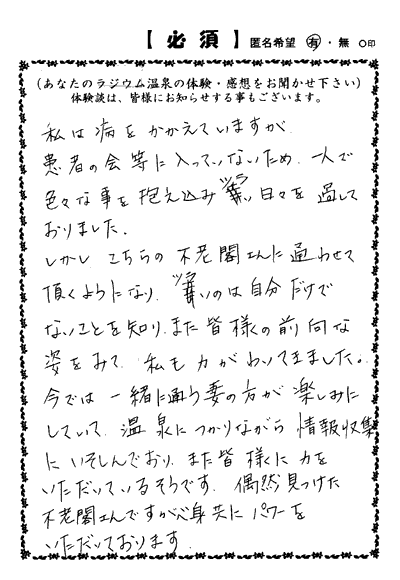 【必須】 匿名希望 有・無 ○印
(あなたのラジウム温泉の体験・感想をお聞かせ下さい)
体験談は、皆様にお知らせする事もございます。
私は病をかかえていますが
患者の会等に入っていないため、一人で
色々な事を抱え込み ツラい日々を過して
おりました。
しかし、こちらの不老閣さんに通わせて
頂くようになり、ツラいのは自分だけで
ないことを知り、また皆様の前向な
姿をみて、私も力がわいてきました。
今では一緒に通う妻の方が楽しみに
していて、温泉につかりながら情報収集
にいそしんでおり、また皆様に力を
いただいているそうです。偶然見つけた
不老閣さんですが心身共にパワーを
いただいております。